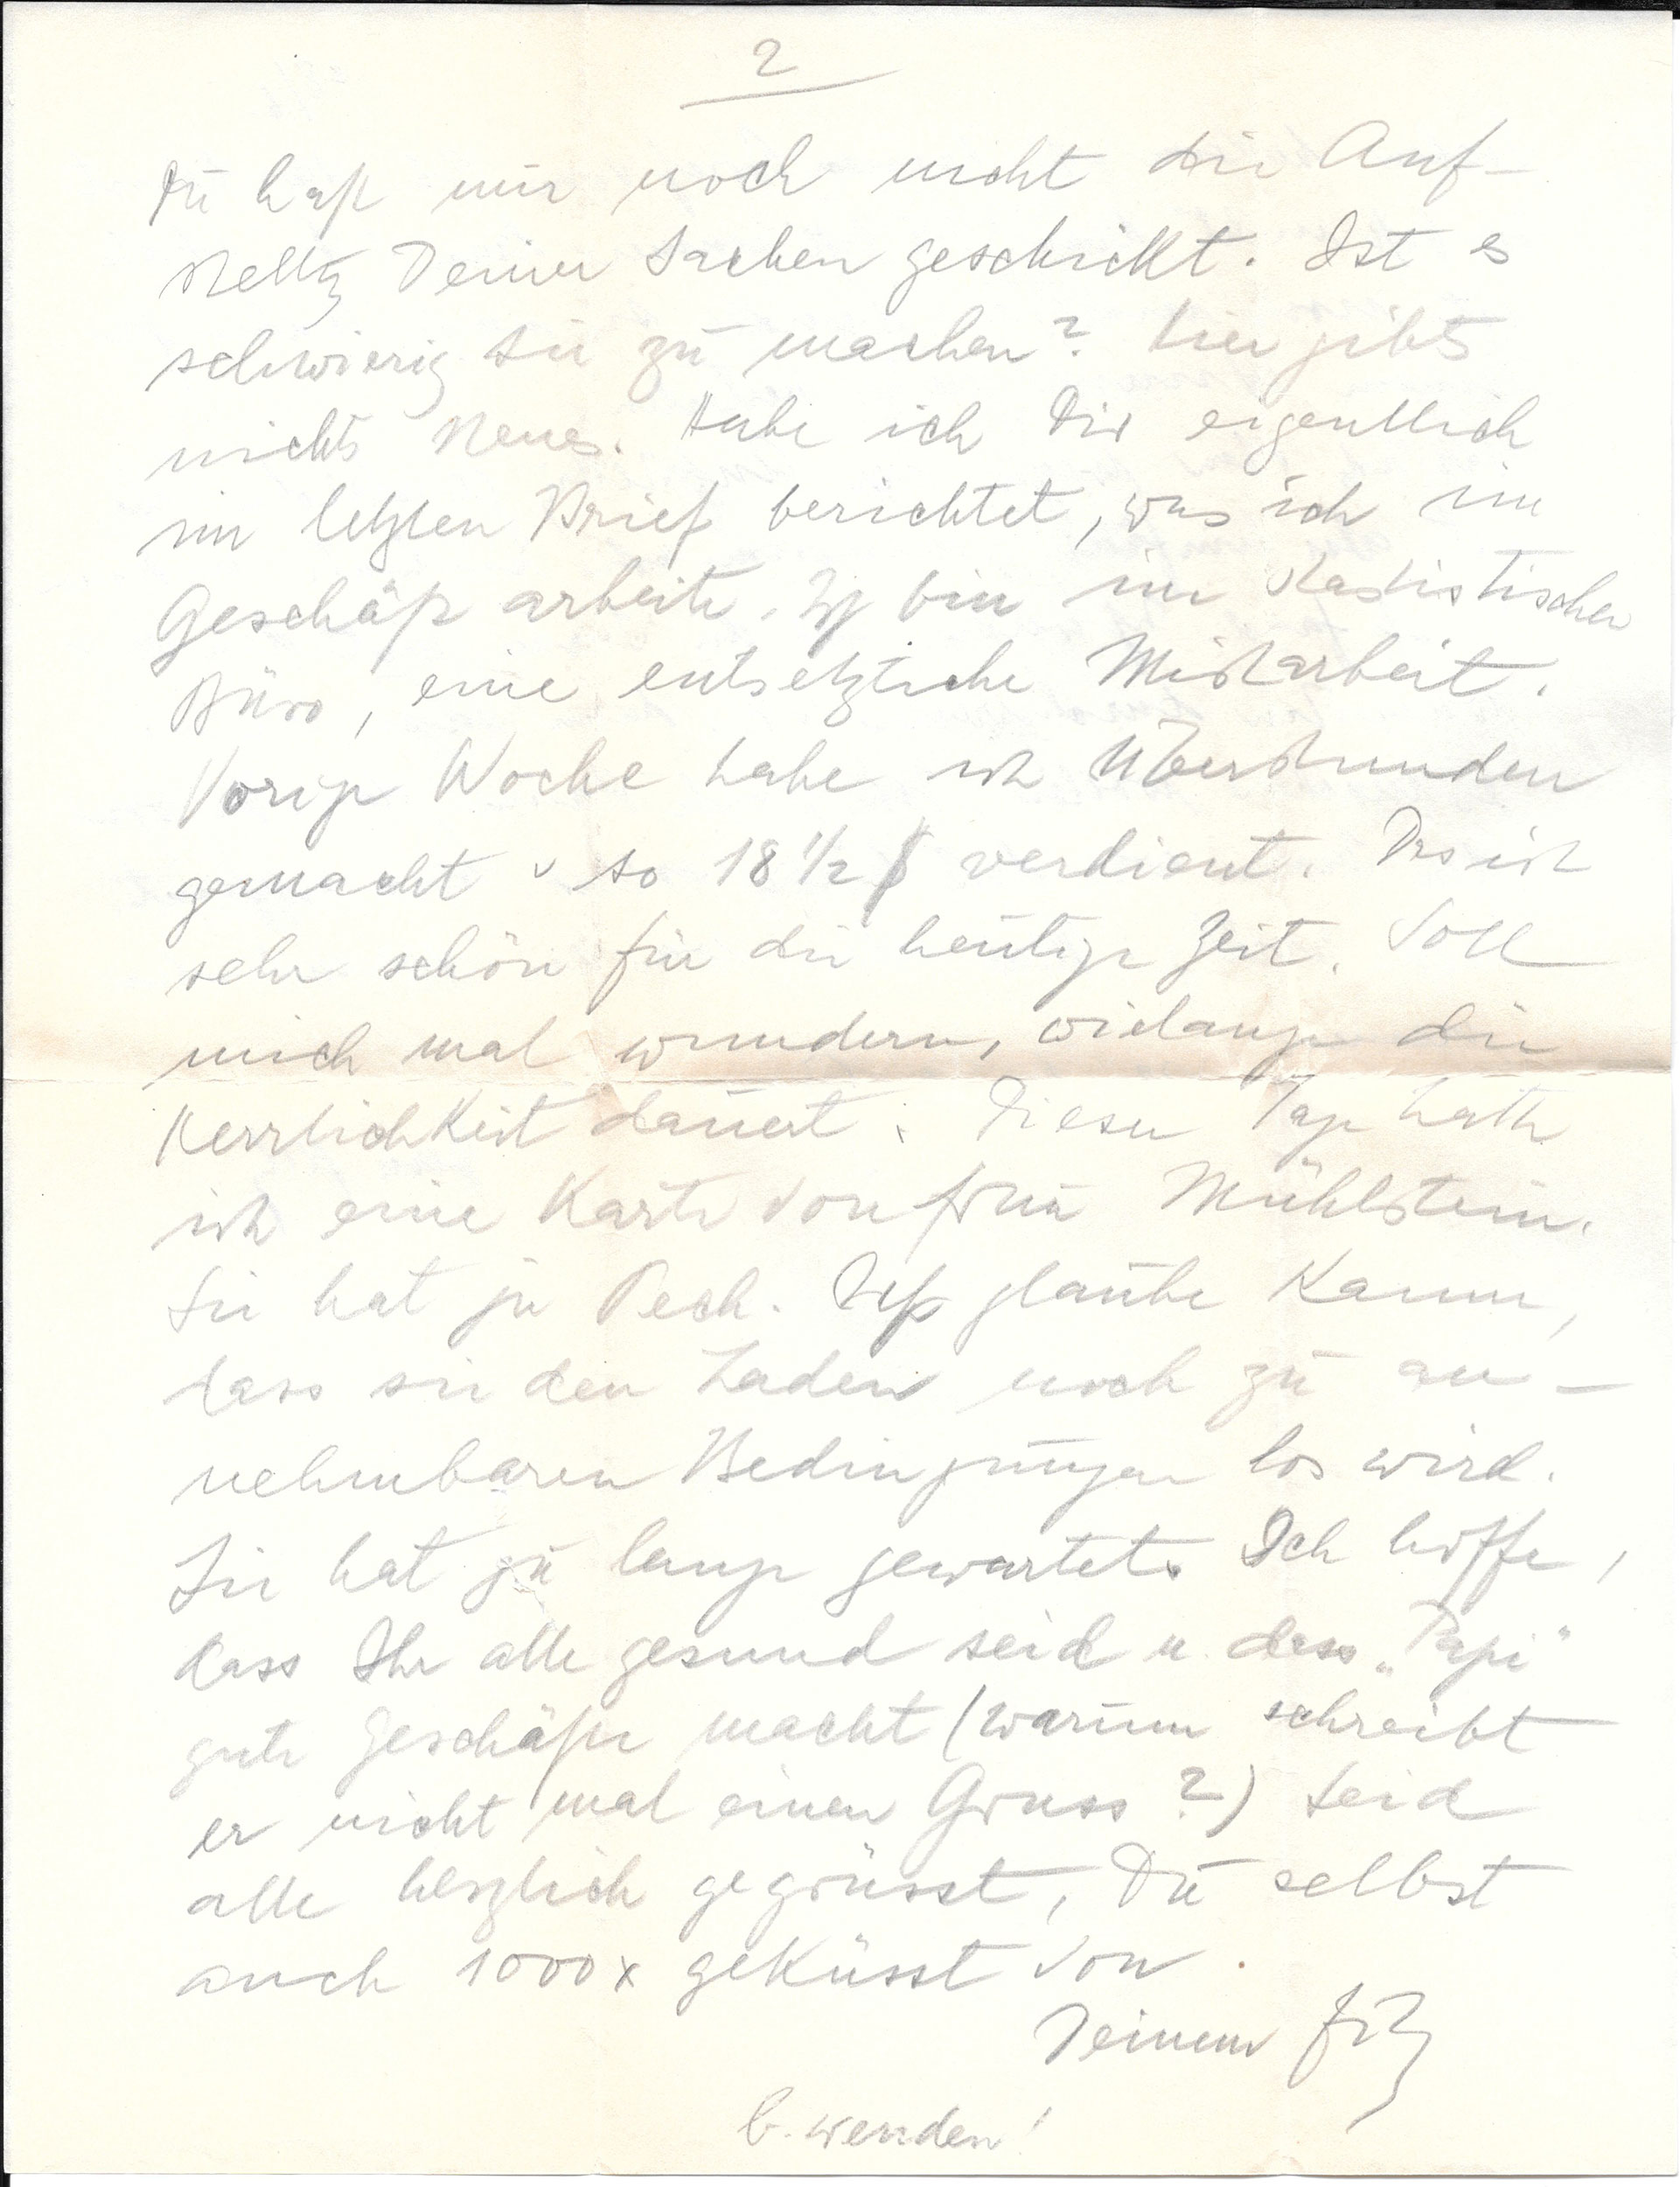 2
Du hast mir noch nicht die Auf-
stellg Deiner Sachen geschickt. Ist es
schwierig sie zu machen? Hier gibts
nichts Neues. Habe ich Dir eigentlich
im letzten Brief berichtet, was ich im
Geschäft arbeite. Ich bin im statistischen
Büro, eine entsetzliche Mistarbeit.
Vorige Woche habe ich Überstunden
gemacht u so 18 1/2 $ verdient. Das ist
sehr schön für die heutige Zeit. Soll
mich mal wundern, wielange die
Herrlichkeit dauert. Dieser Tage hatte
ich eine Karte von Frau Mühlstein.
Sie hat ja Pech. Ich glaube kaum,
dass sie den Laden noch zu an-
nehmbaren Bedingungen los wird.
Sie hat zu lange gewartet. Ich hoffe,
dass Ihr alle gesund seid u. dass „Papi“
gute Geschäfte macht (warum schreibt
er nicht mal einen Gruss?) Seid
alle herzlich gegrüsst, Du selbst
auch 1000x geküsst von
Deinem Fritz
b. wenden!